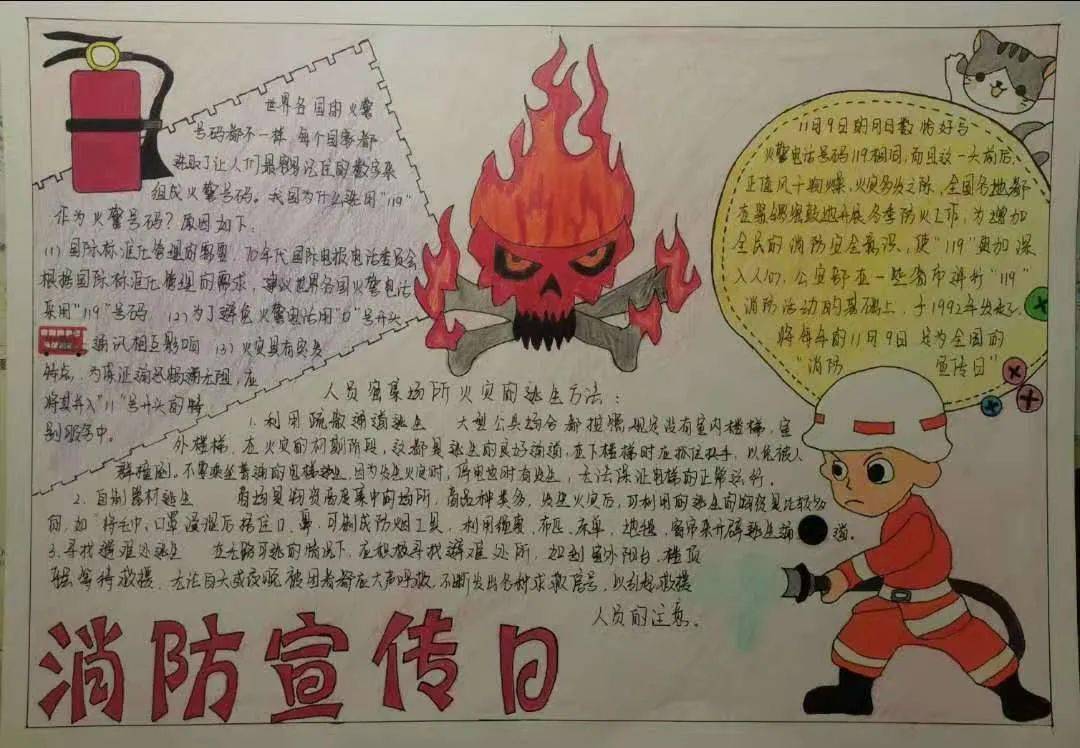 世界各国的火警
号码都不一样,每个国家都
采取了让人们最容易记住的数字来
组成火警号码。我国为什么采用"119"
作为火警号码?原因如下:
(1)国际标准化管理的需要,70年代国际电报电话委员会
根据国际标准化管理的需求,建议世界各国火警电话
采用"119"号码. (2)为了避免火警电话用"0"号开头
通讯相互影响 (3)火灾具有突发
特点,为保证通讯畅通无阻,应
将其并入"11"号开头的特
别服务中.
11月9日的月日数恰好与
火警电话号码119相同,而且这一天前后,
正值风干物燥,火灾多发之际,全国各地都
在紧锣密鼓地开展冬季防火工作,为增加
全民的消防安全意识,使"119"更加深
入人们,公安部在一些省市举行"119"
消防活动的基础上,于1992年发起,
将每年的11月9日定为全国的
"消防 宣传日"
人员密集场所火灾的逃生方法:
1.利用疏散通道逃生 大型公共场合都按照规定设有室内楼梯,室
外楼梯,在火灾的初期阶段,这都是逃生的良好通道,在下楼梯时应抓住扶手,以免被人
群撞倒.不要乘坐普通的电梯逃生,因为发生火灾时,停电也时有发生,无法保证电梯的正常运行.
2.自制器材逃生 商场是物资高度集中的场所,商品种类多,发生火灾后,可利用的逃生的物资是比较多
的,如:将毛巾、口罩浸湿后捂住口、鼻,可制成防烟工具,利用绳索、布匹、床单、地毯、窗帘来开辟逃生通 道.
3.寻找避难处逃生 在无路可逃的情况下,应积极寻找避难处所,如到室外阳台,楼顶
等待救援,无论白天或夜晚被困者都应大声呼救,不断发出各种求救信号,以引起救援
人员的注意.
消防宣传日